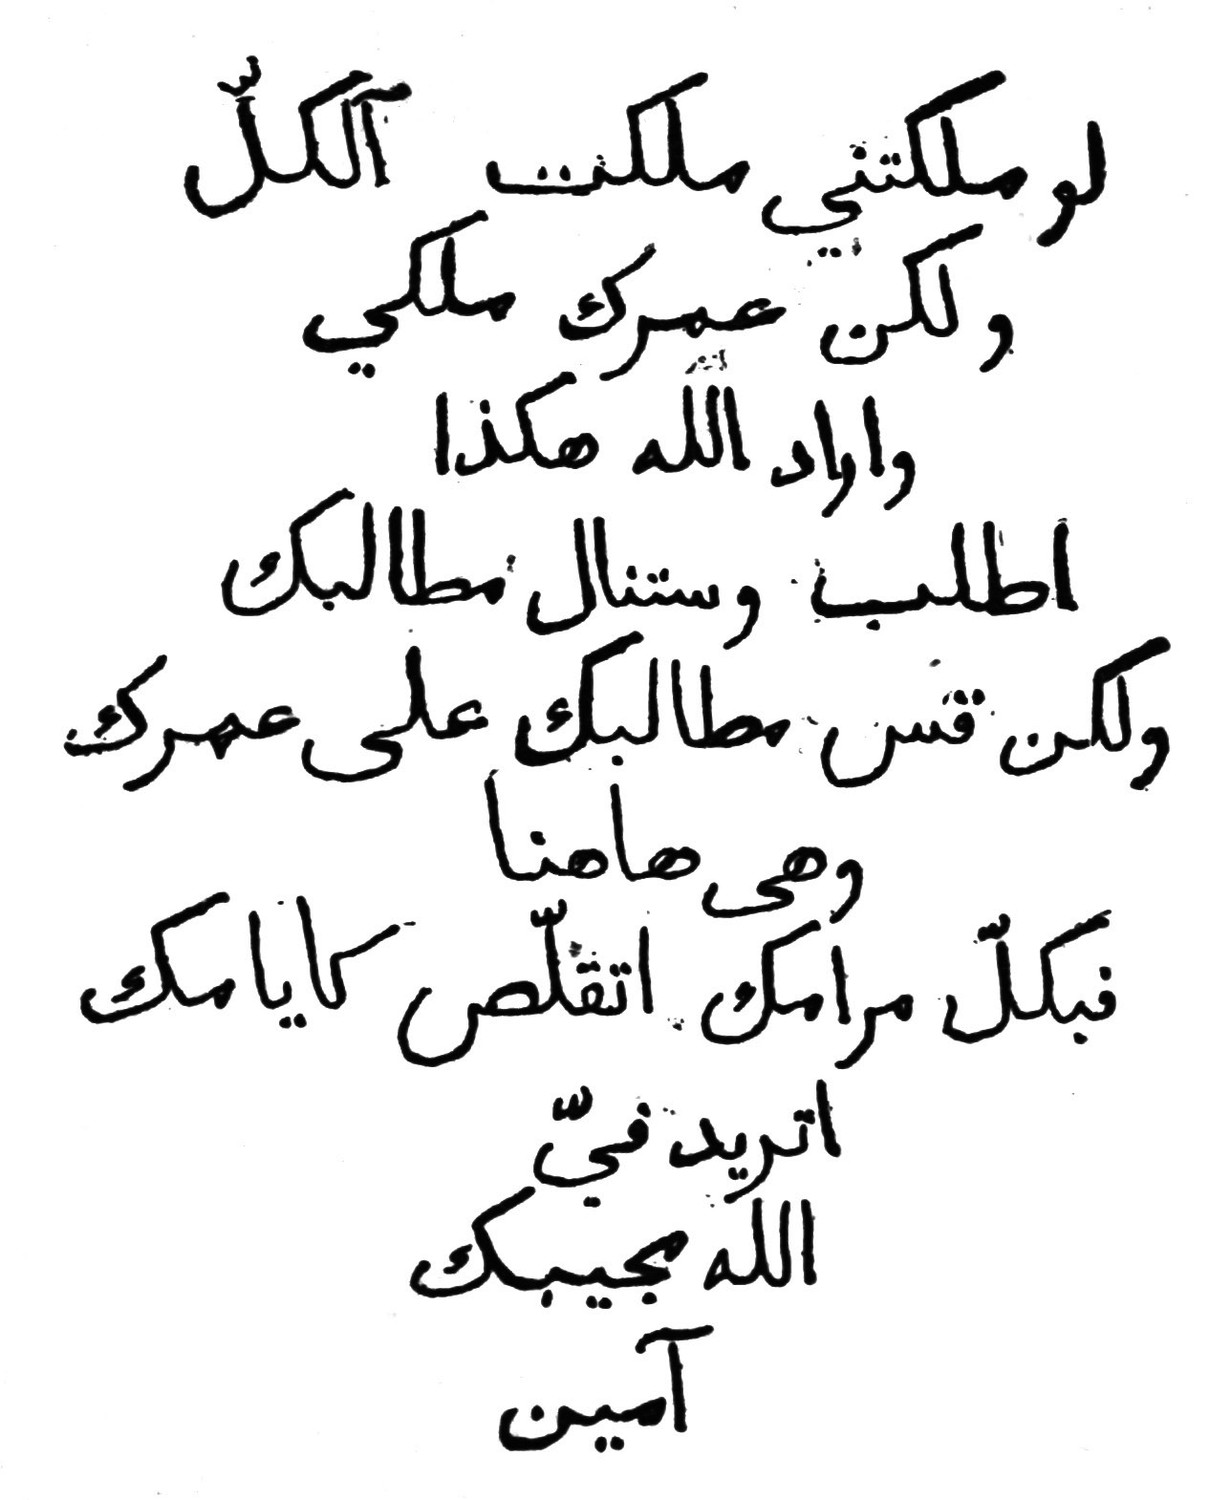 لو ملكتني ملكت آلكلّ
ولكن عمرك ملكي
واراد الله هكذا
اطلب وستنال مطالبك
ولكن قس مطالبك على عمرك
وهى هاهنا
فبكلّ مرامك اتقلّص كايامك
اتريد فيّ
الله مجيبك
آمين